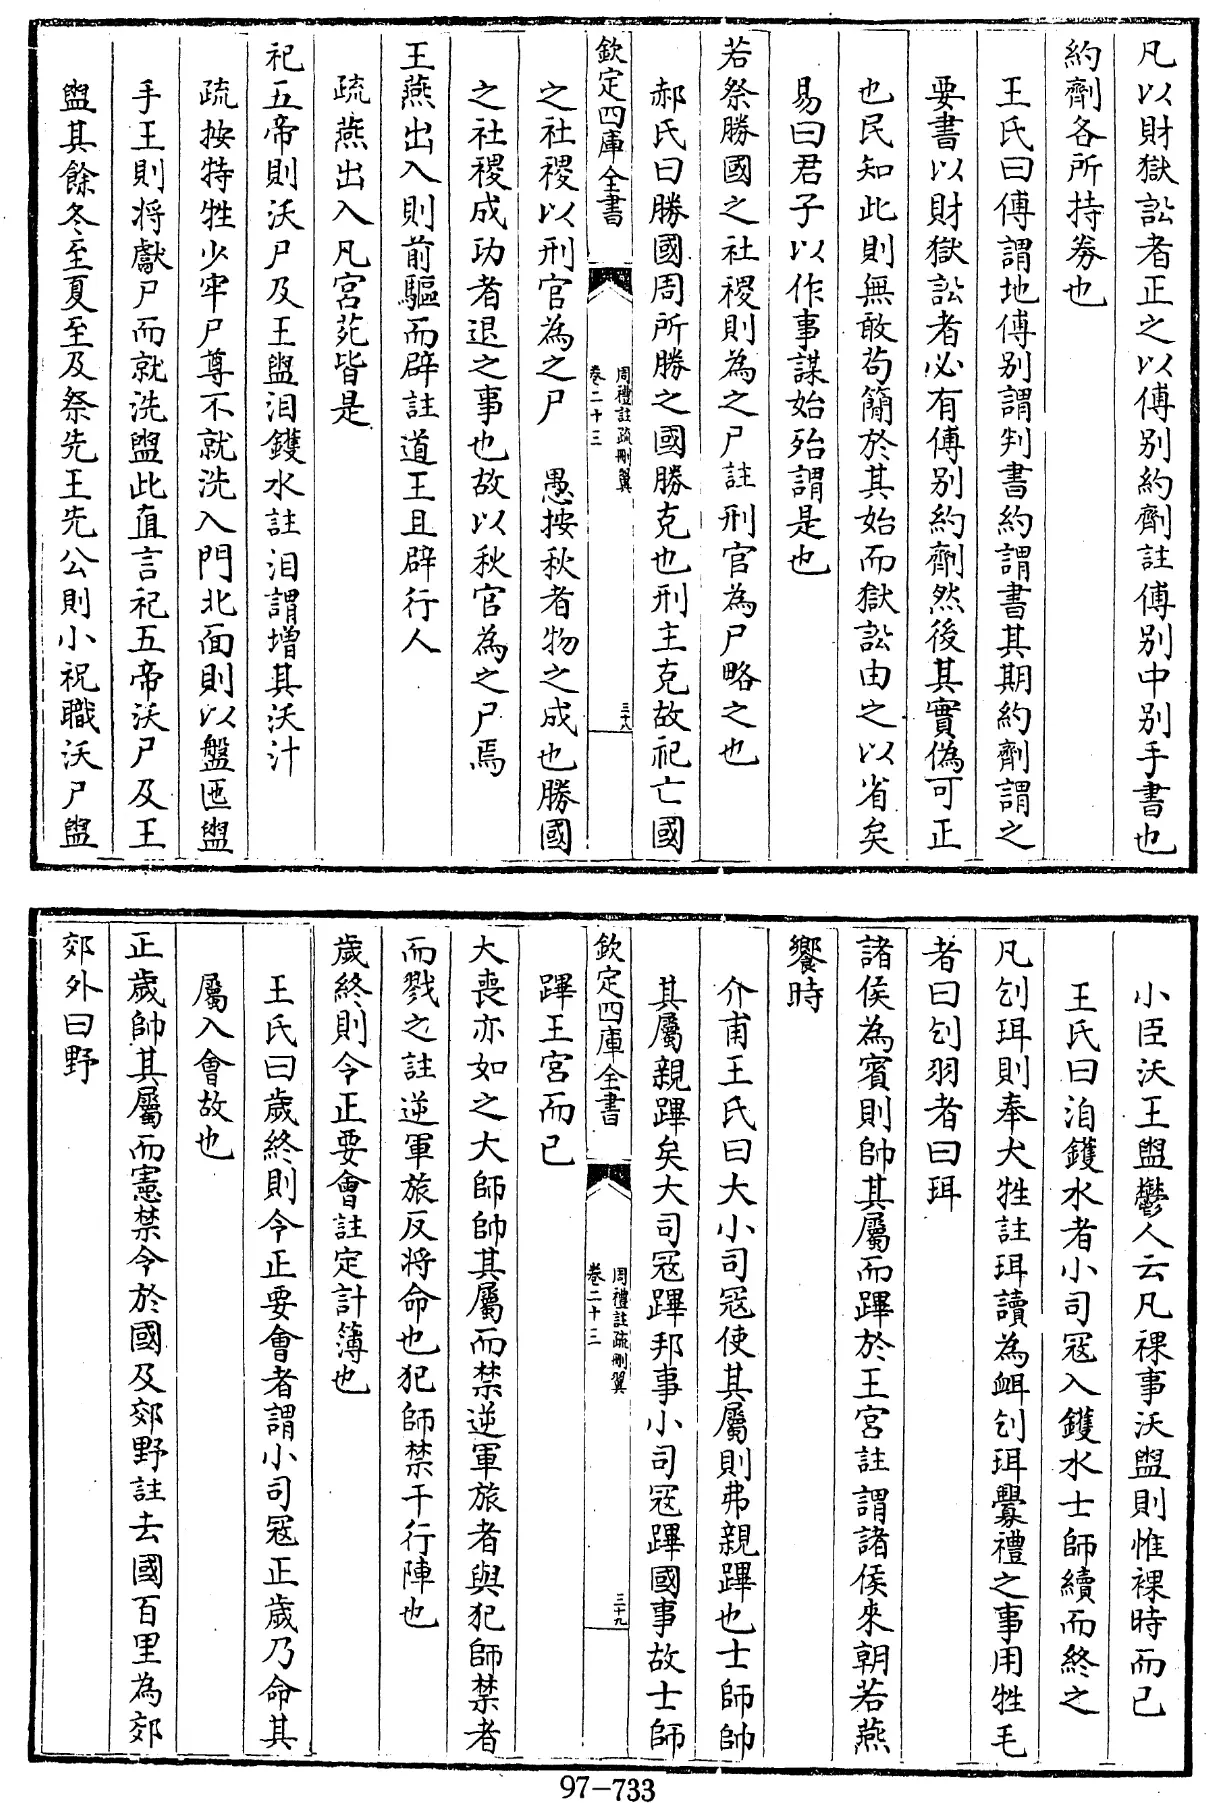 凡以財獄訟者正之以傅别約劑註傅别中别手書也
約劑各所持劵也
王氏曰傅謂地傅别謂判書約謂書其期約劑謂之
要書以財獄訟者必有傅别約劑然後其實偽可正
也民知此則無敢茍簡於其始而獄訟由之以省矣
易曰君子以作事謀始殆謂是也
若祭勝國之社稷則為之尸註刑官為尸略之也
郝氏曰勝國周所勝之國勝克也刑主克故祀亡國
欽定四庫全書
周禮註疏刪翼
卷二十三
三十八
之社稷以刑官為之尸 愚按秋者物之成也勝國
之社稷成功者退之事也故以秋官為之尸焉
王燕出入則前驅而辟註道王且辟行人
疏燕出入凡宮苑皆是
祀五帝則沃尸及王盥洎鑊水註洎謂增其沃汁
疏按特牲少牢尸尊不就洗入門北面則以盤匜盥
手王則将獻尸而就洗盥此直言祀五帝沃尸及王
盥其餘冬至夏至及祭先王先公則小祝職沃尸盥
小臣沃王盥鬱人云凡祼事沃盥則惟祼時而已
王氏曰洎鑊水者小司冦入鑊水士師續而終之
凡刉珥則奉犬牲註珥讀為衈刉珥釁禮之事用牲毛
者曰刉羽者曰珥
諸侯為賓則帥其屬而蹕於王宮註謂諸侯來朝若燕
饗時
介甫王氏曰大小司冦使其屬則弗親蹕也士師帥
其屬親蹕矣大司冦蹕邦事小司冦蹕國事故士師
欽定四庫全書
周禮註疏刪翼
卷二十三
三十九
蹕王宮而已
大喪亦如之大師帥其屬而禁逆軍旅者與犯師禁者
而戮之註逆軍旅反将命也犯師禁干行陣也
歲終則令正要會註定計簿也
王氏曰歲終則令正要會者謂小司冦正歲乃命其
屬入會故也
正歲帥其屬而憲禁令於國及郊野註去國百里為郊
郊外曰野
97-733